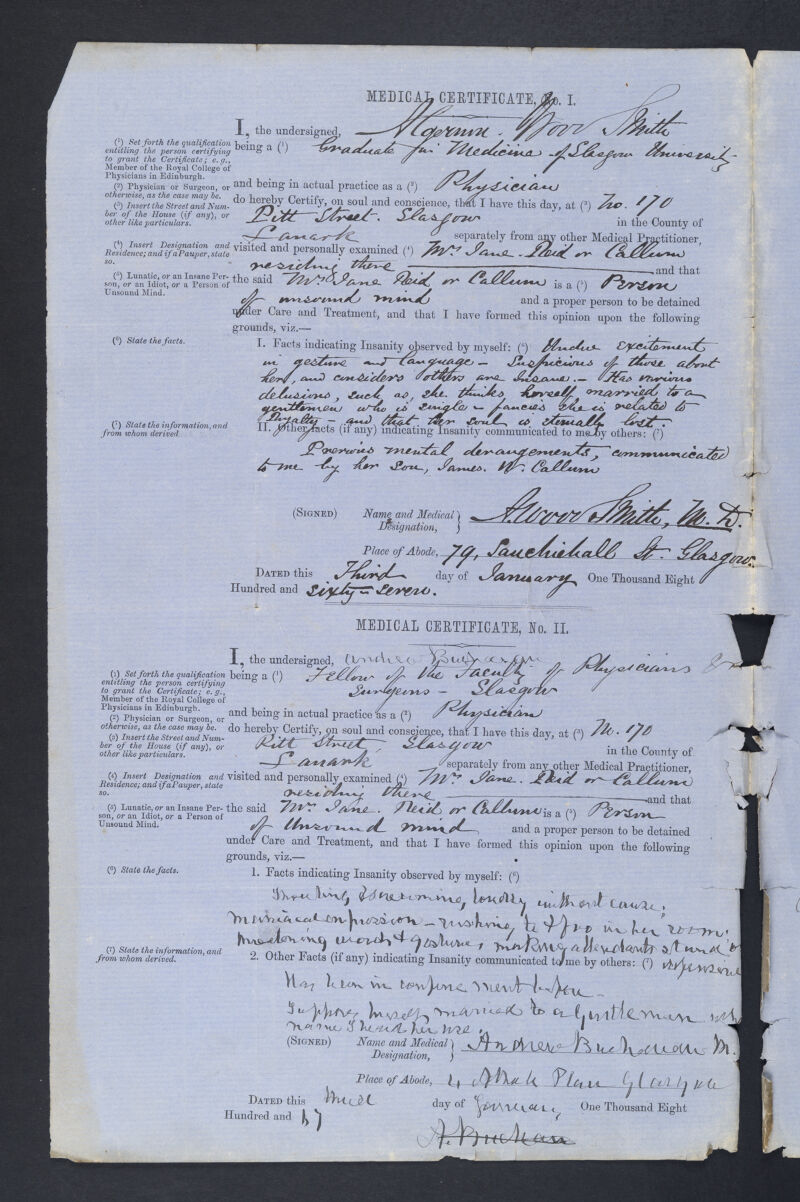 MEDICAL CERTIFICATE, No. I.
I, the undersigned, Algernon Wood Smith
being a (¹) Graduate in Medicine of Glasgow University
and being in actual practice as a (²) Physician
do hereby Certify, on soul and conscience, that I have this day, at (³) No. 170
Pitt Street. Glasgow in the County of
Lanark separately from any other Medical Practitioner,
visited and personally examined (⁴) Mrs Jane Reid or Callum
residing there and that
the said Mrs Jane Reid or Callum is a (⁵) Person
of unsound mind and a proper person to be detained
under Care and Treatment, and that I have formed this opinion upon the following
grounds, viz.—
(¹) Set forth the qualification
entitling the person certifying
to grant the Certificate; e.g.,
Member of the Royal College of
Physicians in Edinburgh.
(²) Physician or Surgeon, or
otherwise, as the case may be.
(³) Insert the Street and Num-
ber of the House (if any), or
other like particulars.
(⁴) Insert Designation and
Residence; and if a Pauper, state
so.
(⁵) Lunatic, or an Insane Per-
son, or an Idiot, or a Person of
Unsound Mind.
(⁶) State the facts.
I. Facts indicating Insanity observed by myself: (⁶) Undue excitement
in gesture and language – Suspicious of those about
her, and considers others are Insane. – Has various
delusions, such as, she thinks herself married to a
gentleman who is single – fancies she is related to
Royalty – and that her soul is eternally lost.
(⁷) State the information, and
from whom derived.
II. Other facts (if any) indicating Insanity communicated to me by others: (⁷)
Previous mental derangements, communicated
to me by her son, James. W. Callum
(SIGNED) Name and Medical Designation, A. Wood Smith, M.D.
Place of Abode, 79, Sauchiehall St. Glasgow.
DATED this Third day of January One Thousand Eight
Hundred and sixty-seven.
MEDICAL CERTIFICATE, No. II.
I, the undersigned, Andrew Buchanan
being a (¹) Fellow of the Faculty of Physicians &
Surgeons – Glasgow
and being in actual practice as a (²) Physician
do hereby Certify, on soul and conscience, that I have this day, at (³) No. 170
Pitt Street, Glasgow in the County of
Lanark separately from any other Medical Practitioner,
visited and personally examined (⁴) Mrs Jane. Reid or Callum
residing there and that
the said Mrs Jane. Reid or Callum is a (⁵) Person
of Unsound mind and a proper person to be detained
under Care and Treatment, and that I have formed this opinion upon the following
grounds, viz.—
(¹) Set forth the qualification
entitling the person certifying
to grant the Certificate; e.g.,
Member of the Royal College of
Physicians in Edinburgh.
(²) Physician or Surgeon, or
otherwise, as the case may be.
(³) Insert the Street and Num-
ber of the House (if any), or
other like particulars.
(⁴) Insert Designation and
Residence; and if a Pauper, state
so.
(⁵) Lunatic, or an Insane Per-
son, or an Idiot, or a Person of
Unsound Mind.
(⁶) State the facts.
1. Facts indicating Insanity observed by myself: (⁶)
Shouting & screaming, loudly without cause,
maniacal expression – rushing to & fro in her room.
threatening words & gestures, making attendants stand
(⁷) State the information, and
from whom derived.
2. Other Facts (if any) indicating Insanity communicated to me by others: (⁷)
Has been in confinement before –
Supposes herself married to a gentleman
name I heard her use.
(SIGNED) Name and Medical Designation, Andrew Buchanan M.
Place of Abode, 4 Athole Place Glasgow
DATED this third day of January, One Thousand Eight
Hundred and 67
A. Buchanan